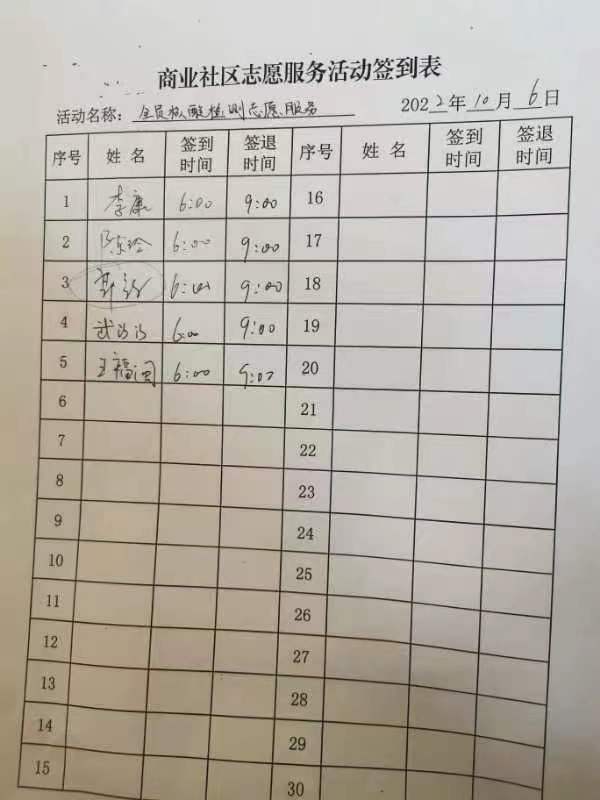 商业社区志愿服务活动签到表
活动名称: 全员核酸检测志愿服务 2022年10月6日
序号 姓名 签到时间 签退时间 序号 姓名 签到时间 签退时间
1 李廉 6:00 9:00 16
2 陈玲 6:00 9:00 17
3 6:00 9:00 18
4 武汐汐 6:00 9:00 19
5 王福闽 6:00 9:07 20
6 21
7 22
8 23
9 24
10 25
11 26
12 27
13 28
14 29
15 30